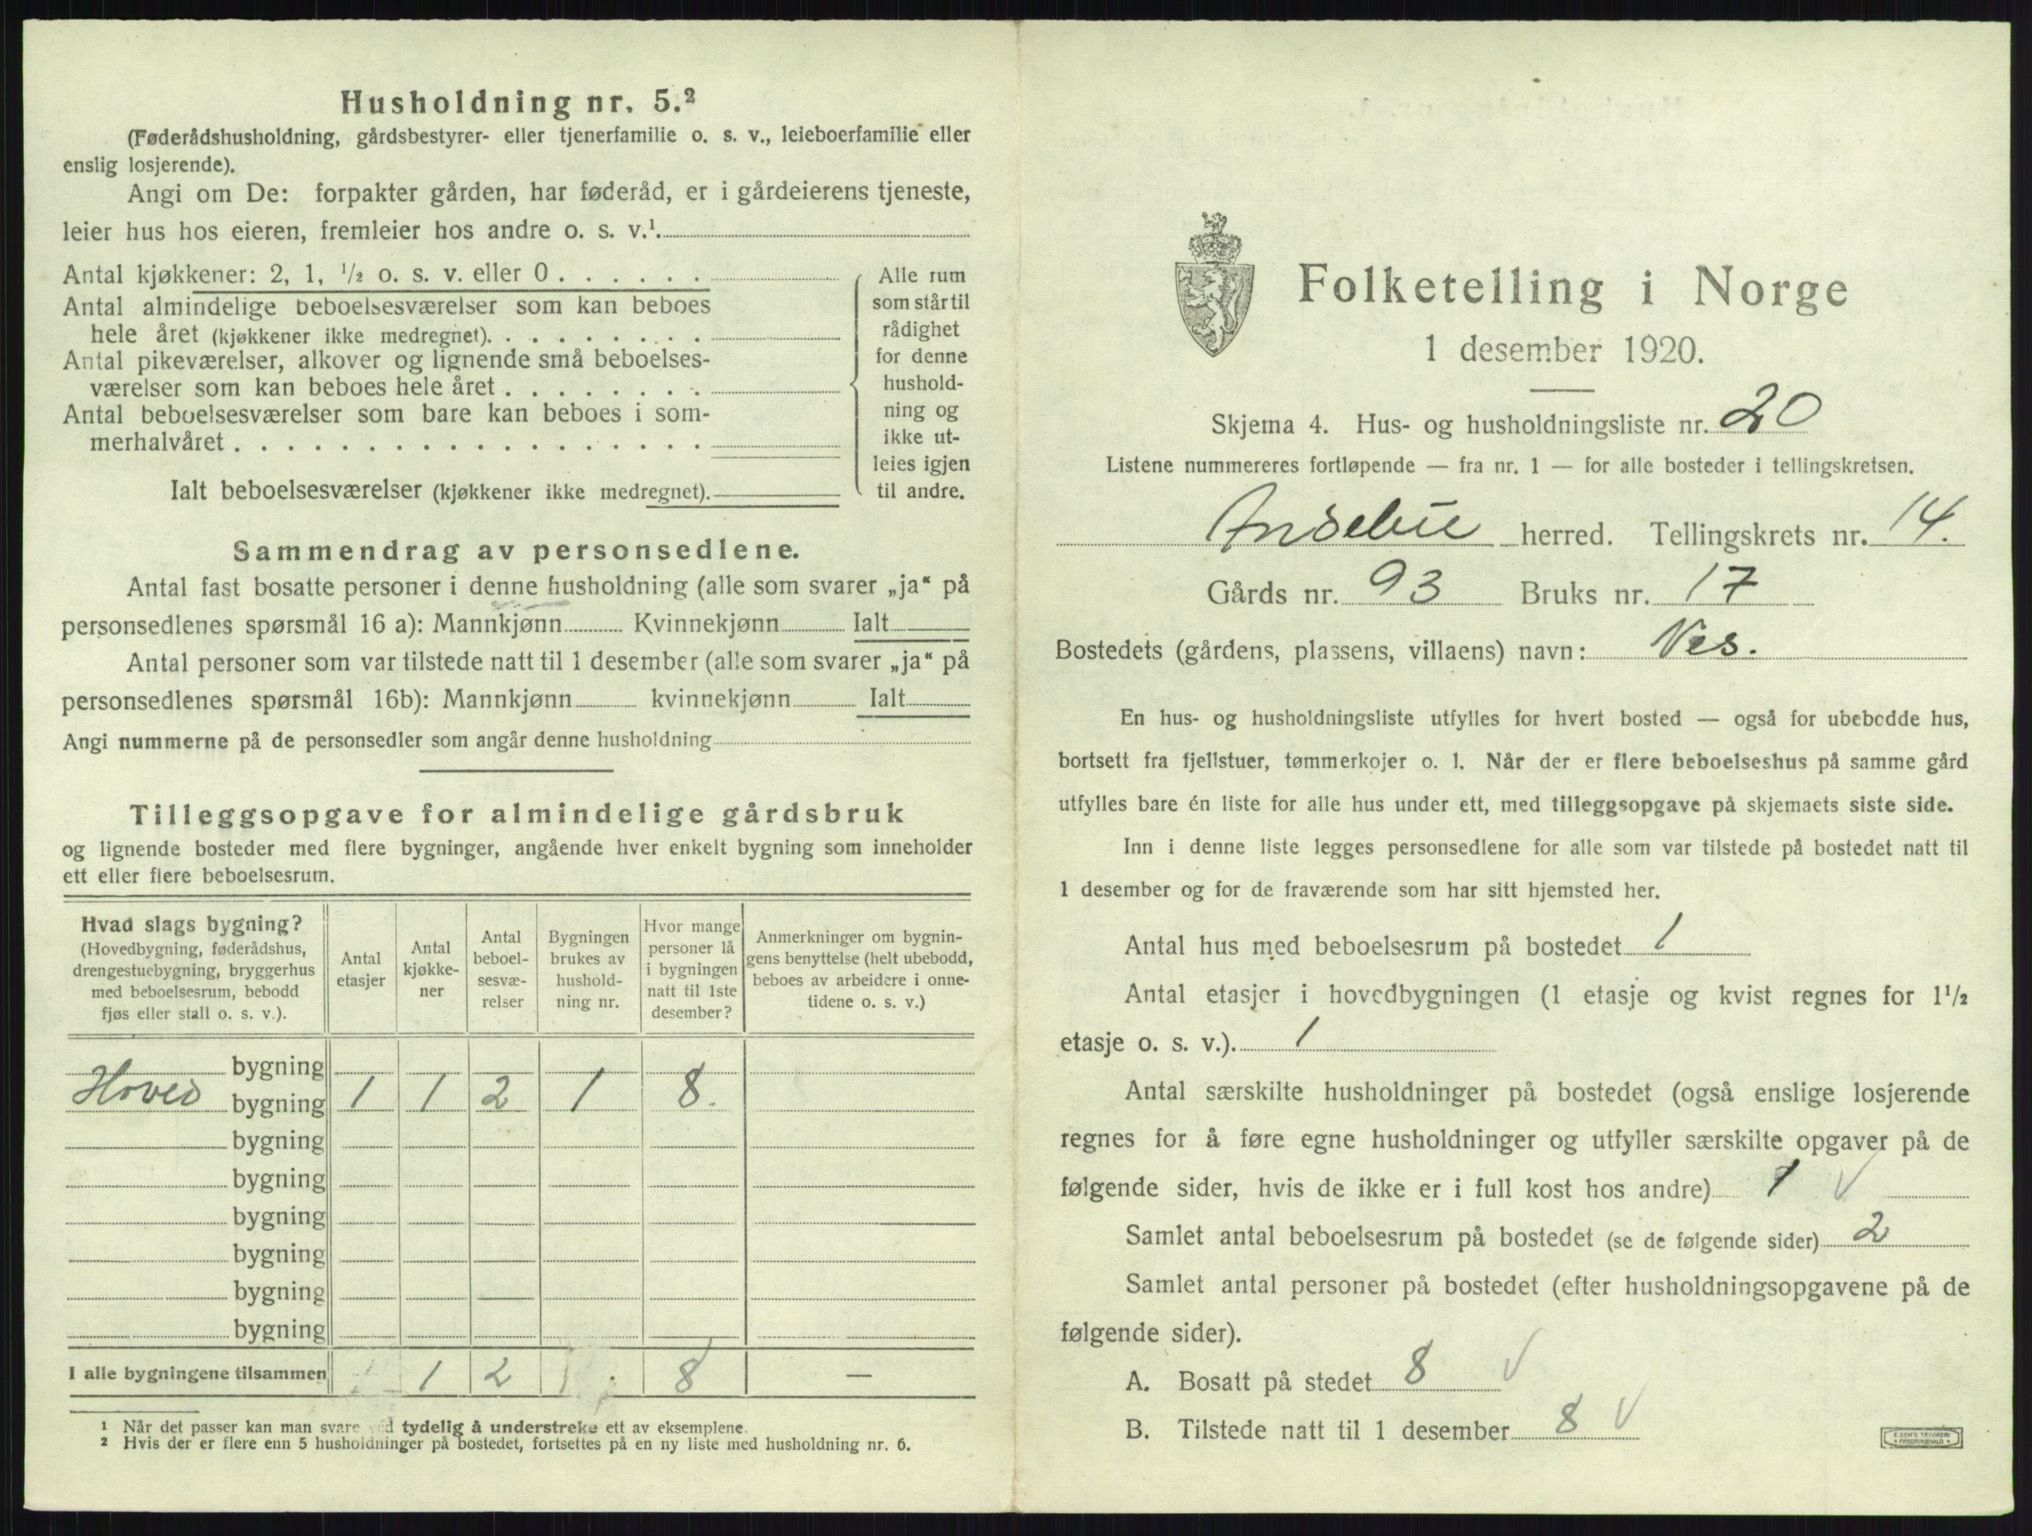 Husholdning nr. 5.²
(Føderådshusholdning, gårdsbestyrer- eller tjenerfamilie o. s. v., leieboerfamilie eller
enslig losjerende).
Angi om De: forpakter gården, har føderåd, er i gårdeierens tjeneste,
leier hus hos eieren, fremleier hos andre o. s. v.¹
Antal kjøkkener: 2, 1, ½ o. s. v. eller 0
Antal almindelige beboelsesværelser som kan beboes
hele året (kjøkkener ikke medregnet)
Antal pikeværelser, alkover og lignende små beboelses-
værelser som kan beboes hele året
Antal beboelsesværelser som bare kan beboes i som-
merhalvåret
Ialt beboelsesværelser (kjøkkener ikke medregnet)
Alle rum
som står til
rådighet
for denne
hushold-
ning og
ikke ut-
leies igjen
til andre.
Sammendrag av personsedlene.
Antal fast bosatte personer i denne husholdning (alle som svarer „ja“ på
personsedlenes spørsmål 16 a): Mannkjønn Kvinnekjønn Ialt
Antal personer som var tilstede natt til 1 desember (alle som svarer „ja“ på
personsedlenes spørsmål 16b): Mannkjønn kvinnekjønn Ialt
Angi nummerne på de personsedler som angår denne husholdning
Tilleggsopgave for almindelige gårdsbruk
og lignende bosteder med flere bygninger, angående hver enkelt bygning som inneholder
ett eller flere beboelsesrum.
Hvad slags bygning?
(Hovedbygning, føderådshus,
drengestuebygning, bryggerhus
med beboelsesrum, bebodd
fjøs eller stall o. s. v.).
Antal
etasjer
Antal
kjøkke-
ner
Antal
beboel-
sesvæ-
relser
Bygningen
brukes av
hushold-
ning nr.
Hvor mange
personer lå
i bygningen
natt til 1ste
desember?
Anmerkninger om bygnin-
gens benyttelse (helt ubebodd,
beboes av arbeidere i onne-
tidene o. s. v.)
bygning
Hoved bygning 1 1 2 1 8.
bygning
bygning
bygning
bygning
bygning
bygning
I alle bygningene tilsammen 1 1 2 1 8 —
¹ Når det passer kan man svare ved tydelig å understreke ett av eksemplene.
² Hvis der er flere enn 5 husholdninger på bostedet, fortsettes på en ny liste med husholdning nr. 6.
Folketelling i Norge
1 desember 1920.
Skjema 4. Hus- og husholdningsliste nr. 20
Listene nummereres fortløpende — fra nr. 1 — for alle bosteder i tellingskretsen.
Andebu herred. Tellingskrets nr. 14.
Gårds nr. 93 Bruks nr. 17
Bostedets (gårdens, plassens, villaens) navn: Nes.
En hus- og husholdningsliste utfylles for hvert bosted — også for ubebodde hus,
bortsett fra fjellstuer, tømmerkojer o. l. Når der er flere beboelseshus på samme gård
utfylles bare én liste for alle hus under ett, med tilleggsopgave på skjemaets siste side.
Inn i denne liste legges personsedlene for alle som var tilstede på bostedet natt til
1 desember og for de fraværende som har sitt hjemsted her.
Antal hus med beboelsesrum på bostedet 1
Antal etasjer i hovedbygningen (1 etasje og kvist regnes for 1½
etasje o. s. v.). 1
Antal særskilte husholdninger på bostedet (også enslige losjerende
regnes for å føre egne husholdninger og utfyller særskilte opgaver på de
følgende sider, hvis de ikke er i full kost hos andre) 1 √
Samlet antal beboelsesrum på bostedet (se de følgende sider) 2
Samlet antal personer på bostedet (efter husholdningsopgavene på de
følgende sider).
A. Bosatt på stedet 8 √
B. Tilstede natt til 1 desember 8 √
E. SEM'S TRYKKERI
FREDRIKSHALD